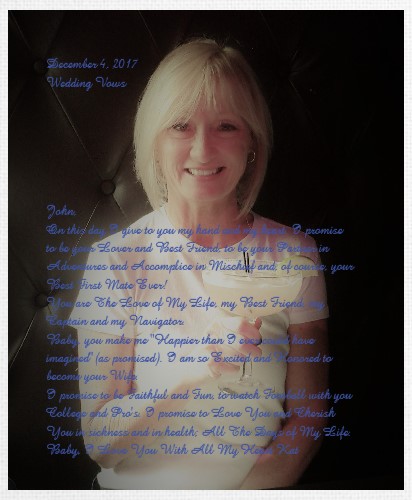 December 4, 2017
Wedding Vows
John,
On this day I give to you my hand and my heart. I promise
to be your Lover and Best Friend; to be your Partner in
Adventures and Accomplice in Mischief and, of course, your
Best First Mate Ever!
You are The Love of My Life, my Best Friend, my
Captain and my Navigator.
Baby, you make me "Happier than I ever could have
imagined" (as promised). I am so Excited and Honored to
become your Wife.
I promise to be Faithful and Fun, to watch Football with you
College and Pro's. I promise to Love You and Cherish
You in sickness and in health; All The Days of My Life.
Baby, I Love You With All My Heart Kat